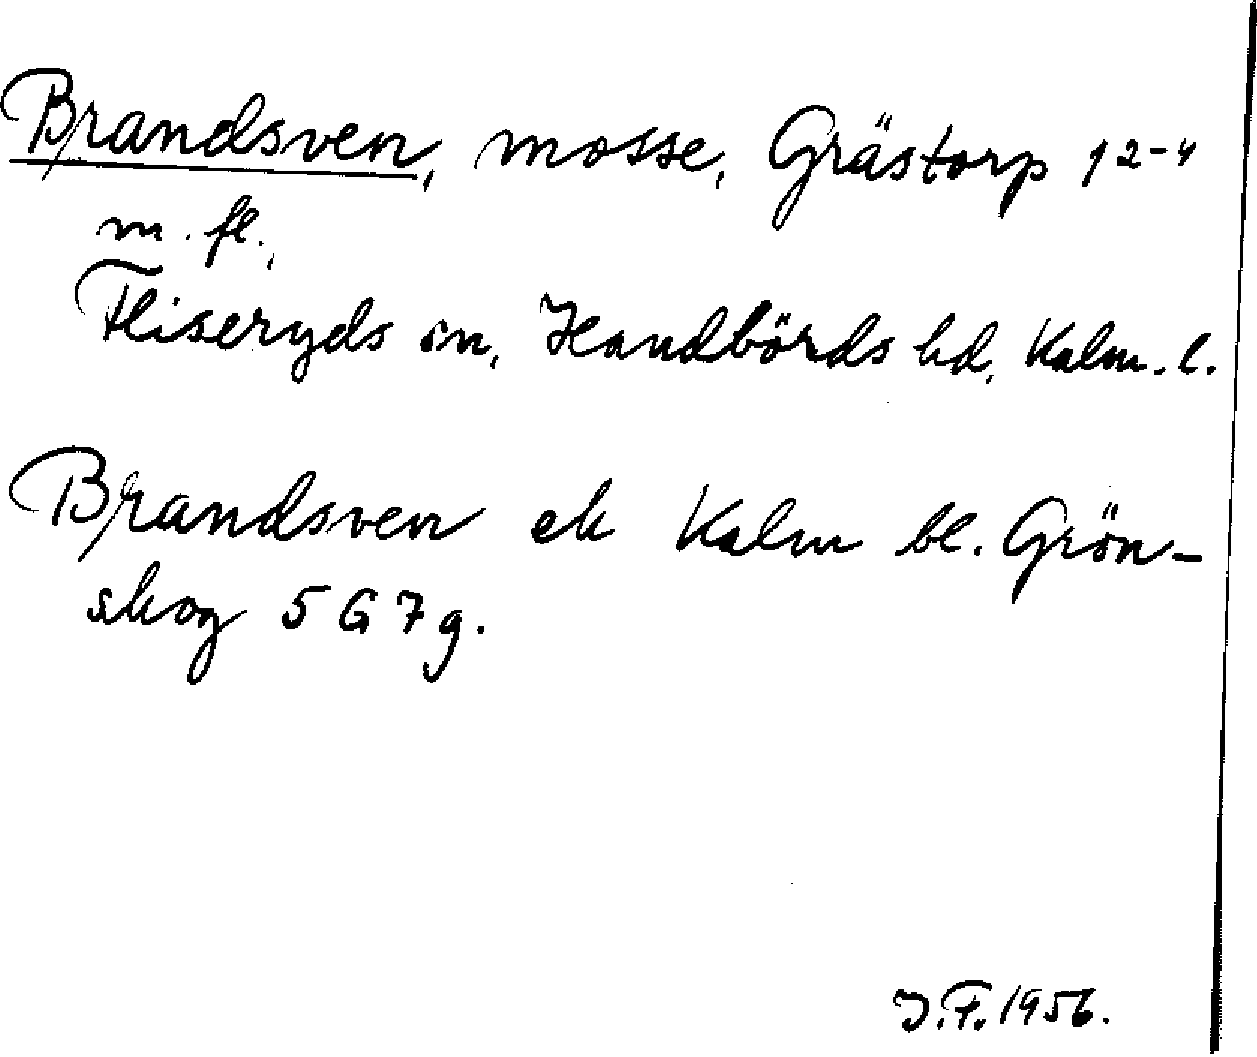 Brandsven, mosse, Grästorp 1 2-4
m. fl.,
Fliseryds sn, Handbörds hd, Kalm. l.
Brandsven ek Kalm bl. Grön-
skog 5 G 7 g.
J.F. 1956.